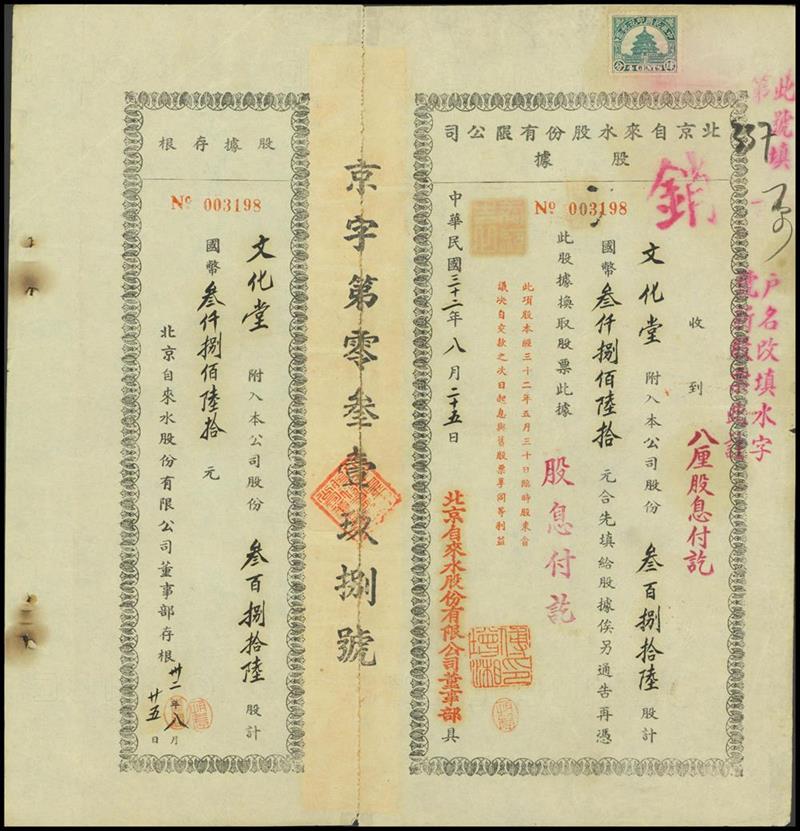 此號填
第
戶名改填水字
北京自來水股份有限公司
股據
№ 003198
銷
收到
八厘股息付訖
文化堂 附入本公司股份 叁百捌拾陸 股計
國幣 叁仟捌佰陸拾 元合先填給股據俟另通告再憑
此股據換取股票此據
股息付訖
此項股本經三十二年五月三十日臨時股東會
議決自交款之次日起息與舊股票享同等利益
中華民國三十二年八月二十五日
北京自來水股份有限公司董事部具
京字第零叁壹玖捌號
股據存根
№ 003198
文化堂 附入本公司股份 叁百捌拾陸 股計
國幣 叁仟捌佰陸拾 元
北京自來水股份有限公司董事部存根 卅二年八月廿五日
CENTS